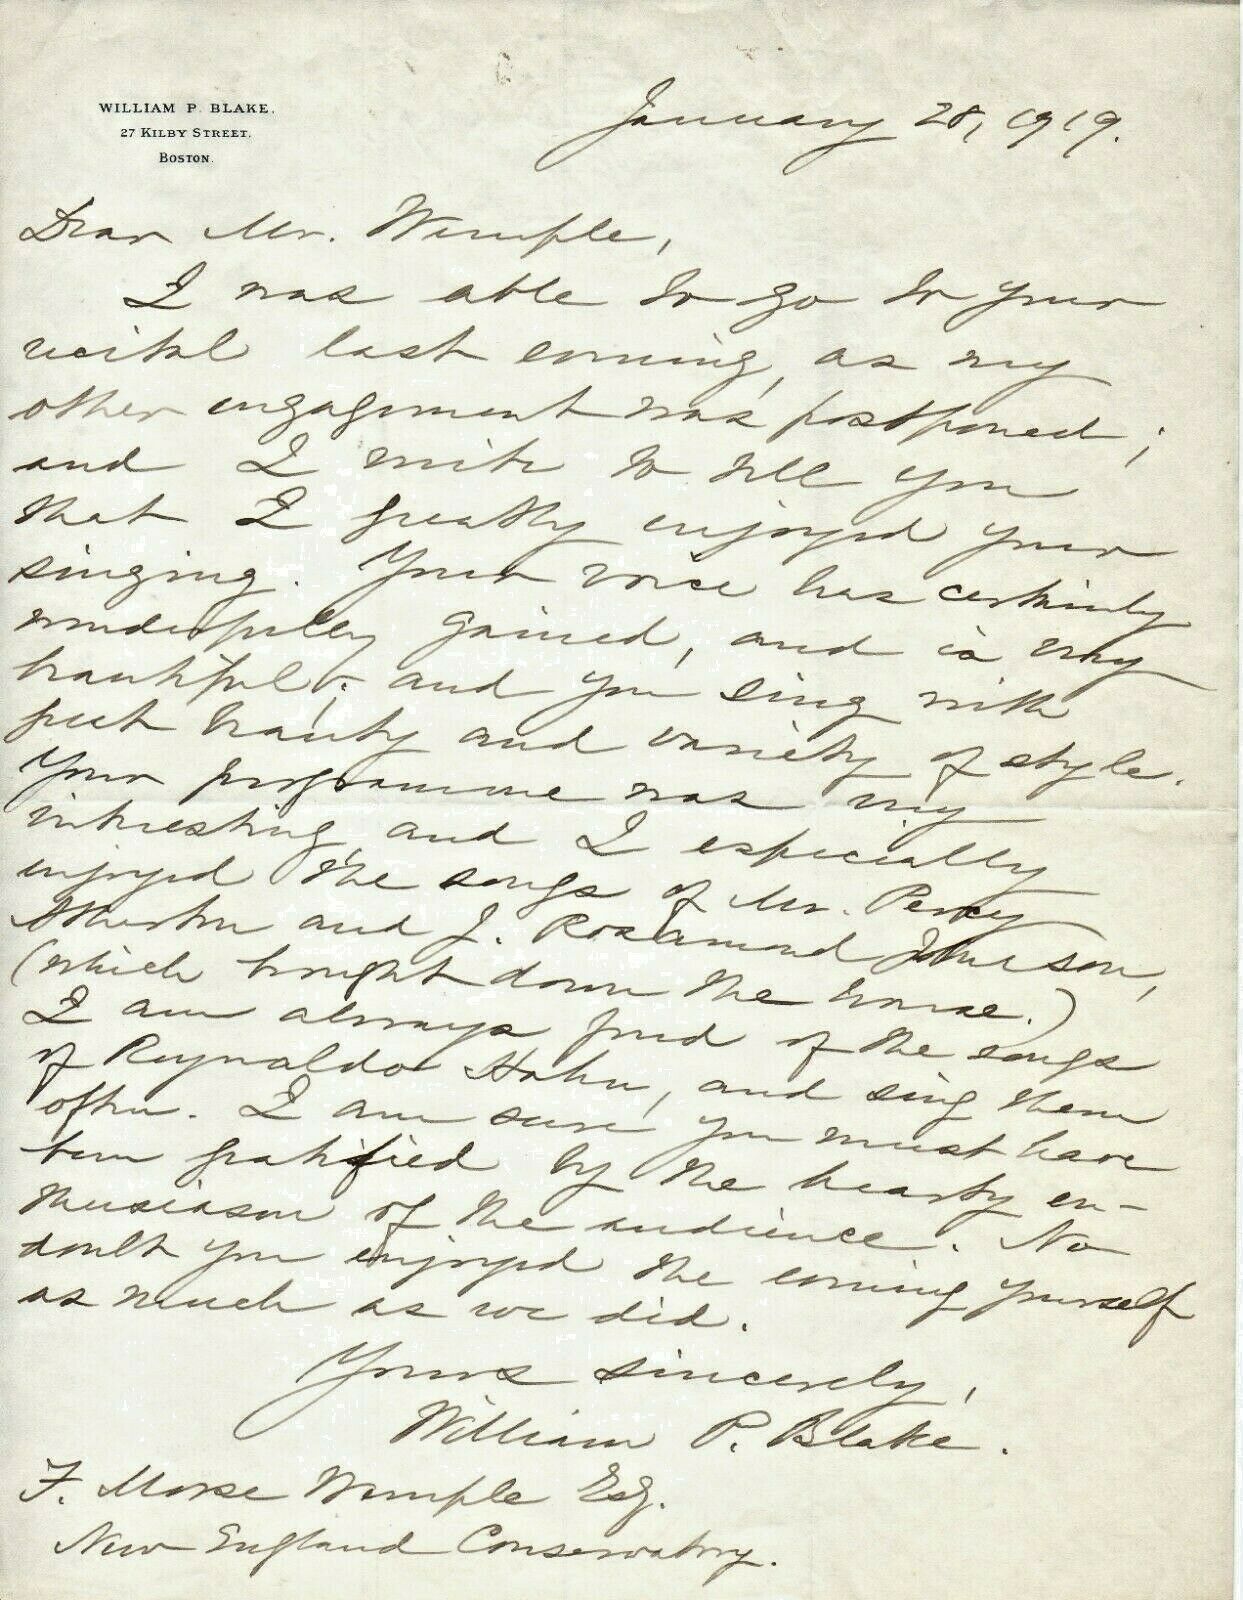 WILLIAM P. BLAKE.
27 KILBY STREET.
BOSTON.
January 28, 1919.
Dear Mr. Wemple,
I was able to go to your
recital last evening, as my
other engagement was postponed;
and I write to tell you
that I greatly enjoyed your
singing. Your voice has certainly
wonderfully gained, and is very
beautiful; and you sing with
great beauty and variety of style.
Your programme was very
interesting, and I especially
enjoyed the songs of Mr. Percy
Atherton and J. Rosamond Johnson,
(which brought down the house.)
I am always fond of the songs
of Reynaldo Hahn, and sing them
often. I am sure you must have
been gratified by the hearty en-
thusiasm of the audience. No
doubt you enjoyed the evening yourself
as much as we did.
Yours sincerely,
William P. Blake.
F. Morse Wemple Esq.
New England Conservatory.